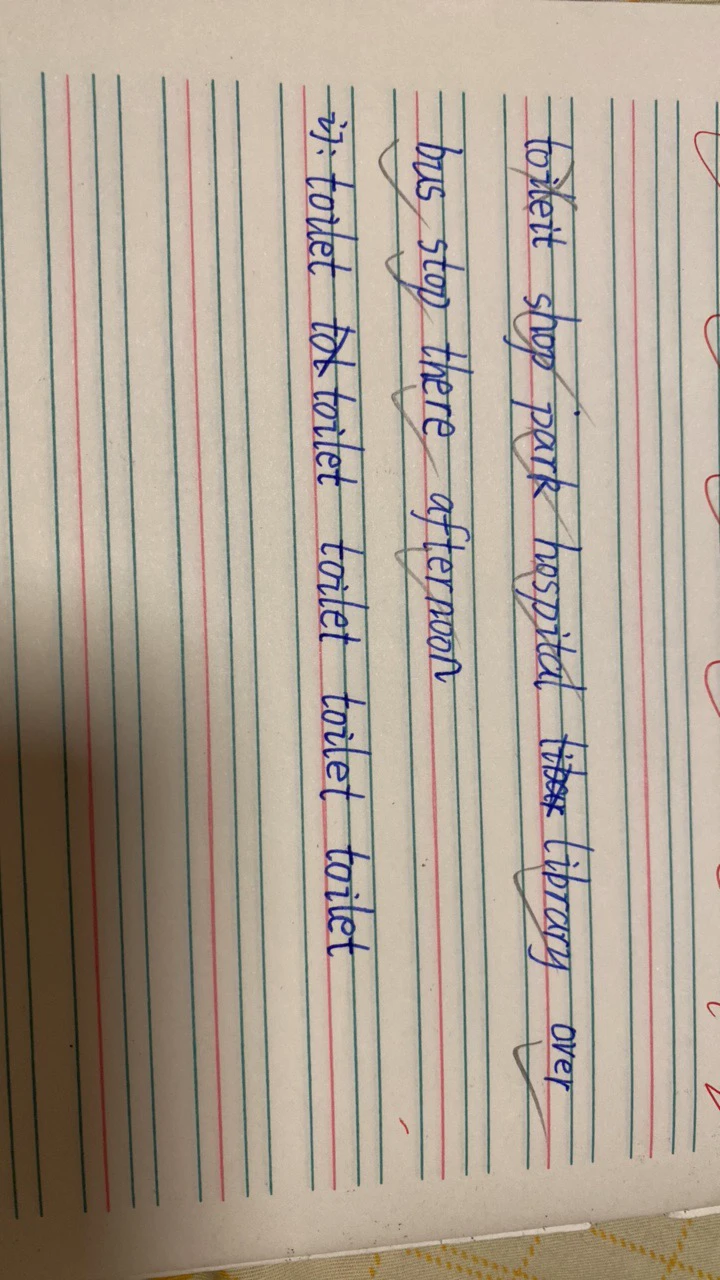 toileit shop park hospital library over
bus stop there afternoon
订: toilet toilet toilet toilet toilet